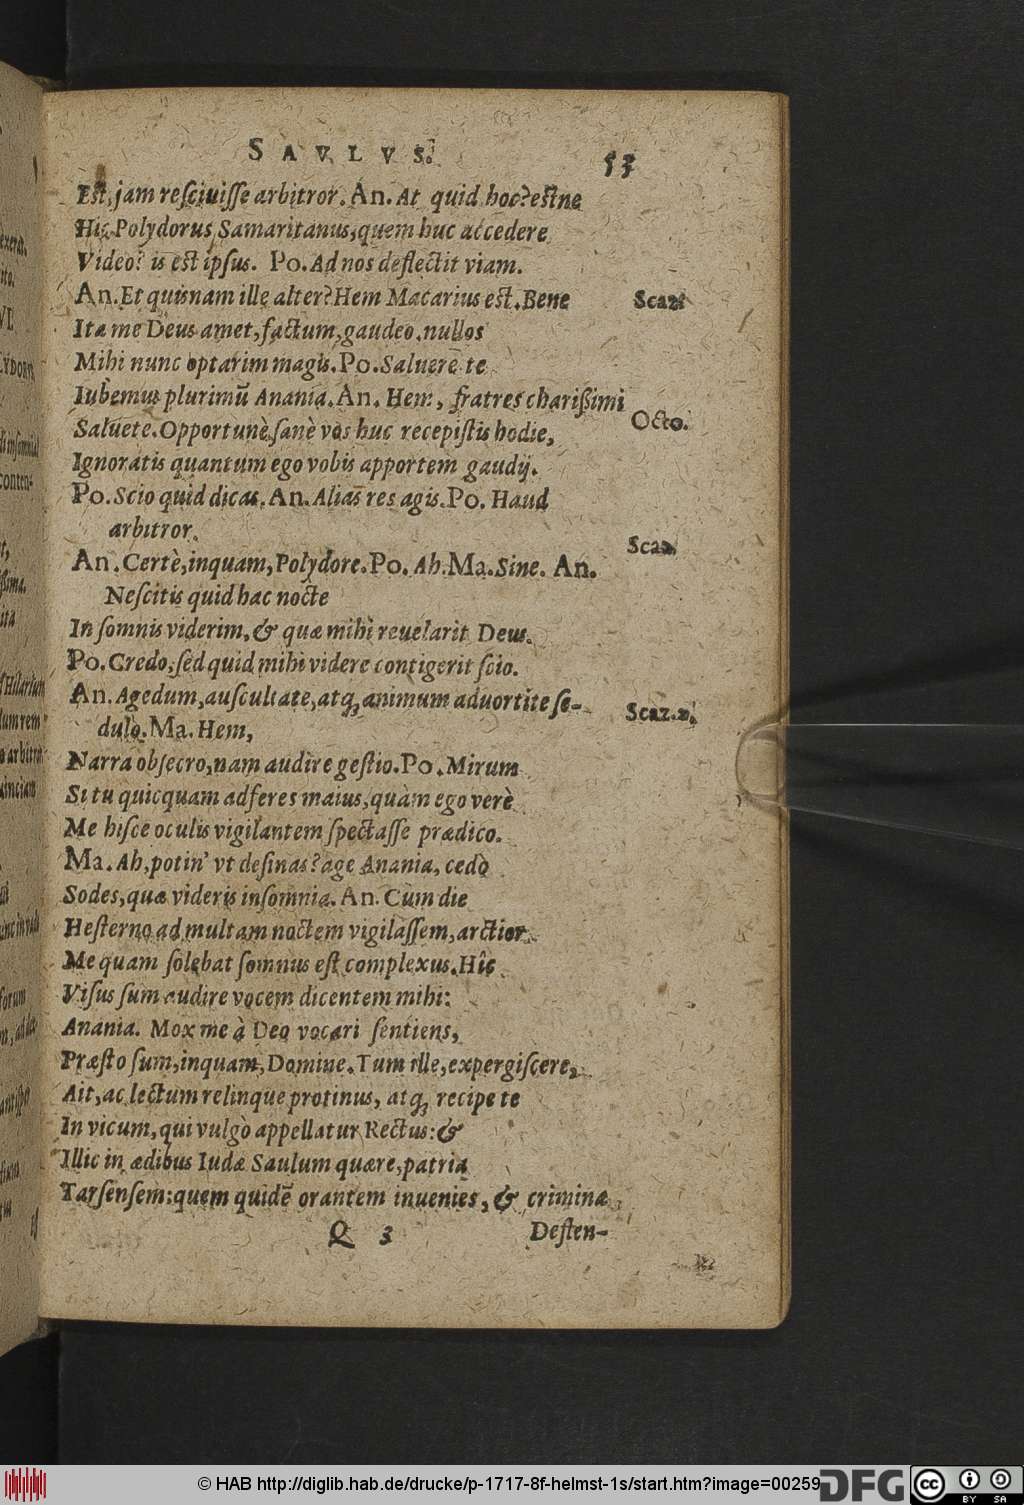 SAVLVS. 53
Est, jam resciuisse arbitror. An. At quid hoc? estne
Hic Polydorus Samaritanus, quem huc accedere
Video? is est ipsus. Po. Ad nos deflectit viam.
An. Et quisnam ille alter? Hem Macarius est. Bene Scaz.
Ita me Deus amet, factum, gaudeo. nullos
Mihi nunc optarim magis. Po. Saluerē te
Iubemus plurimū Anania. An. Hem, fratres charißimi
Saluete. Opportunè sanè vos huc recepistis hodie, Octo.
Ignoratis quantum ego vobis apportem gaudij.
Po. Scio quid dicas. An. Alias res agis. Po. Haud
arbitror. Scaz.
An. Certè, inquam, Polydore. Po. Ah. Ma. Sine. An.
Nescitis quid hac nocte
In somnis viderim, & quæ mihi reuelarit Deus.
Po. Credo, sed quid mihi videre contigerit scio.
An. Agedum, auscultate, atq; animum aduortite se-
dulò. Ma. Hem, Scaz. 2.
Narra obsecro, nam audire gestio. Po. Mirum
Si tu quicquam adferes maius, quàm ego verè
Me hisce oculis vigilantem spectasse prædico.
Ma. Ah, potin' vt desinas? age Anania, cedò
Sodes, quæ videris insomnia. An. Cùm die
Hesterno ad multam noctem vigilassem, arctior
Me quam solebat somnus est complexus. Hîc
Visus sum audire vocem dicentem mihi:
Anania. Mox me à Deo vocari sentiens,
Præsto sum, inquam, Domine. Tum ille, expergiscere,
Ait, ac lectum relinque protinus, atq; recipe te
In vicum, qui vulgò appellatur Rectus: &
Illic in ædibus Iudæ Saulum quære, patria
Tarsensem: quem quidē orantem inuenies, & crimina
Q 3 Desten-
© HAB http://diglib.hab.de/drucke/p-1717-8f-helmst-1s/start.htm?image=00259
DFG
cc BY SA